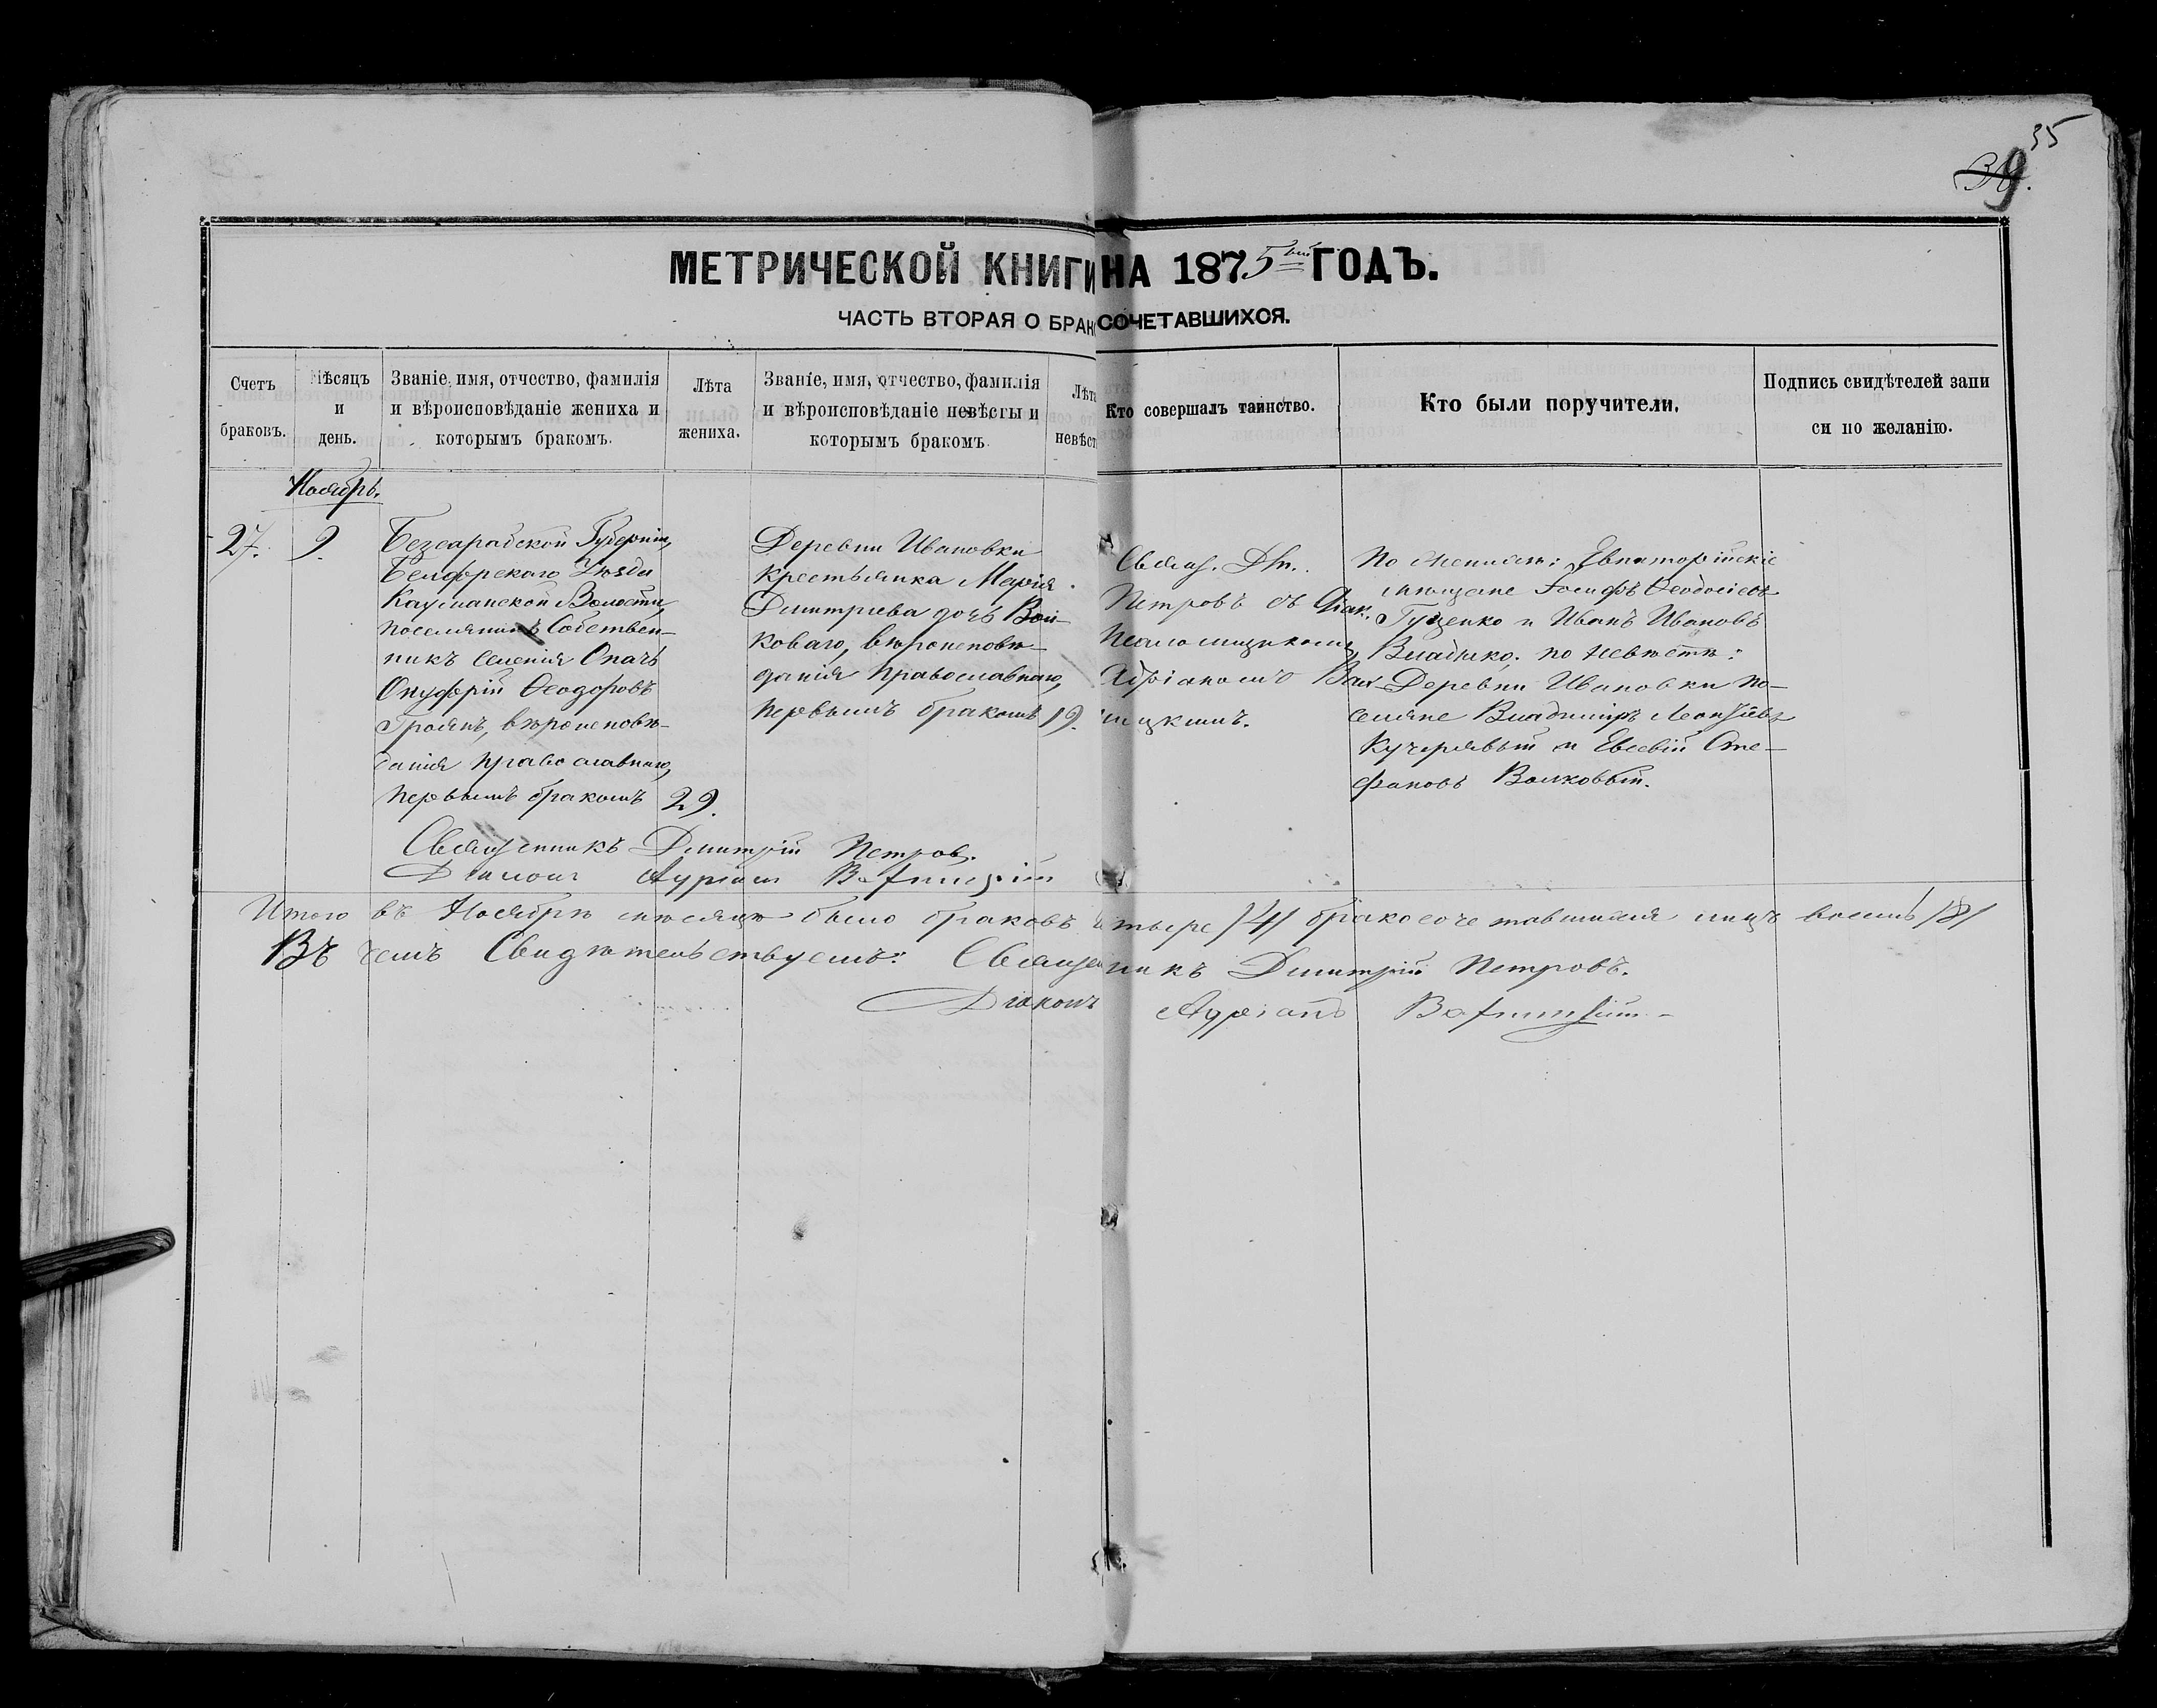 35
39.
МЕТРИЧЕСКОЙ КНИГИ НА 1875ый ГОДЪ.
ЧАСТЬ ВТОРАЯ О БРАКОСОЧЕТАВШИХСЯ.
Счетъ браковъ.
Мѣсяцъ и день.
Званіе, имя, отчество, фамилія
и вѣроисповѣданіе жениха и
которымъ бракомъ.
Лѣта жениха.
Званіе, имя, отчество, фамилія
и вѣроисповѣданіе невѣсты и
которымъ бракомъ.
Лѣта невѣст
Кто совершалъ таинство.
Кто были поручители.
Подпись свидѣтелей запи
си по желанію.
Ноябрь.
27.
9.
Безсарабской Губерніи,
Бендерскаго Уѣзда
Каушанской Волости,
поселянинъ Собствен-
никъ селенія Опачъ
Онуфрій Ѳеодоровъ
Троянъ, вѣроисповѣ-
данія православнаго,
первымъ бракомъ
29.
Деревни Ивановки
крестьянка Марія
Димитріева дочь Вой-
коваго, вѣроисповѣ-
данія православнаго,
первымъ бракомъ
19.
Свящ. Дм.
Петровъ съ Діак.
Псаломщикомъ
Адріаномъ Вах-
ницкимъ.
По женихѣ: Евпаторійскіе
мѣщане Іосифъ Ѳеодосіевъ
Гуценко и Иванъ Ивановъ
Владыко. по невѣстѣ:
Деревни Ивановки по-
селяне Владиміръ Леонтіевъ
Кучерявый и Евсевій Сте-
фановъ Волковый.
Священникъ Димитрій Петров.
Діаконъ Адріанъ Вахницкій
Итого въ Ноябрѣ мѣсяцѣ было браковъ четыре /4/ бракосочетавшихся лицъ восемь /8/
Въ чемъ Свидѣтельствуемъ: Священникъ Димитрій Петровъ.
Діаконъ Адріанъ Вахницкій